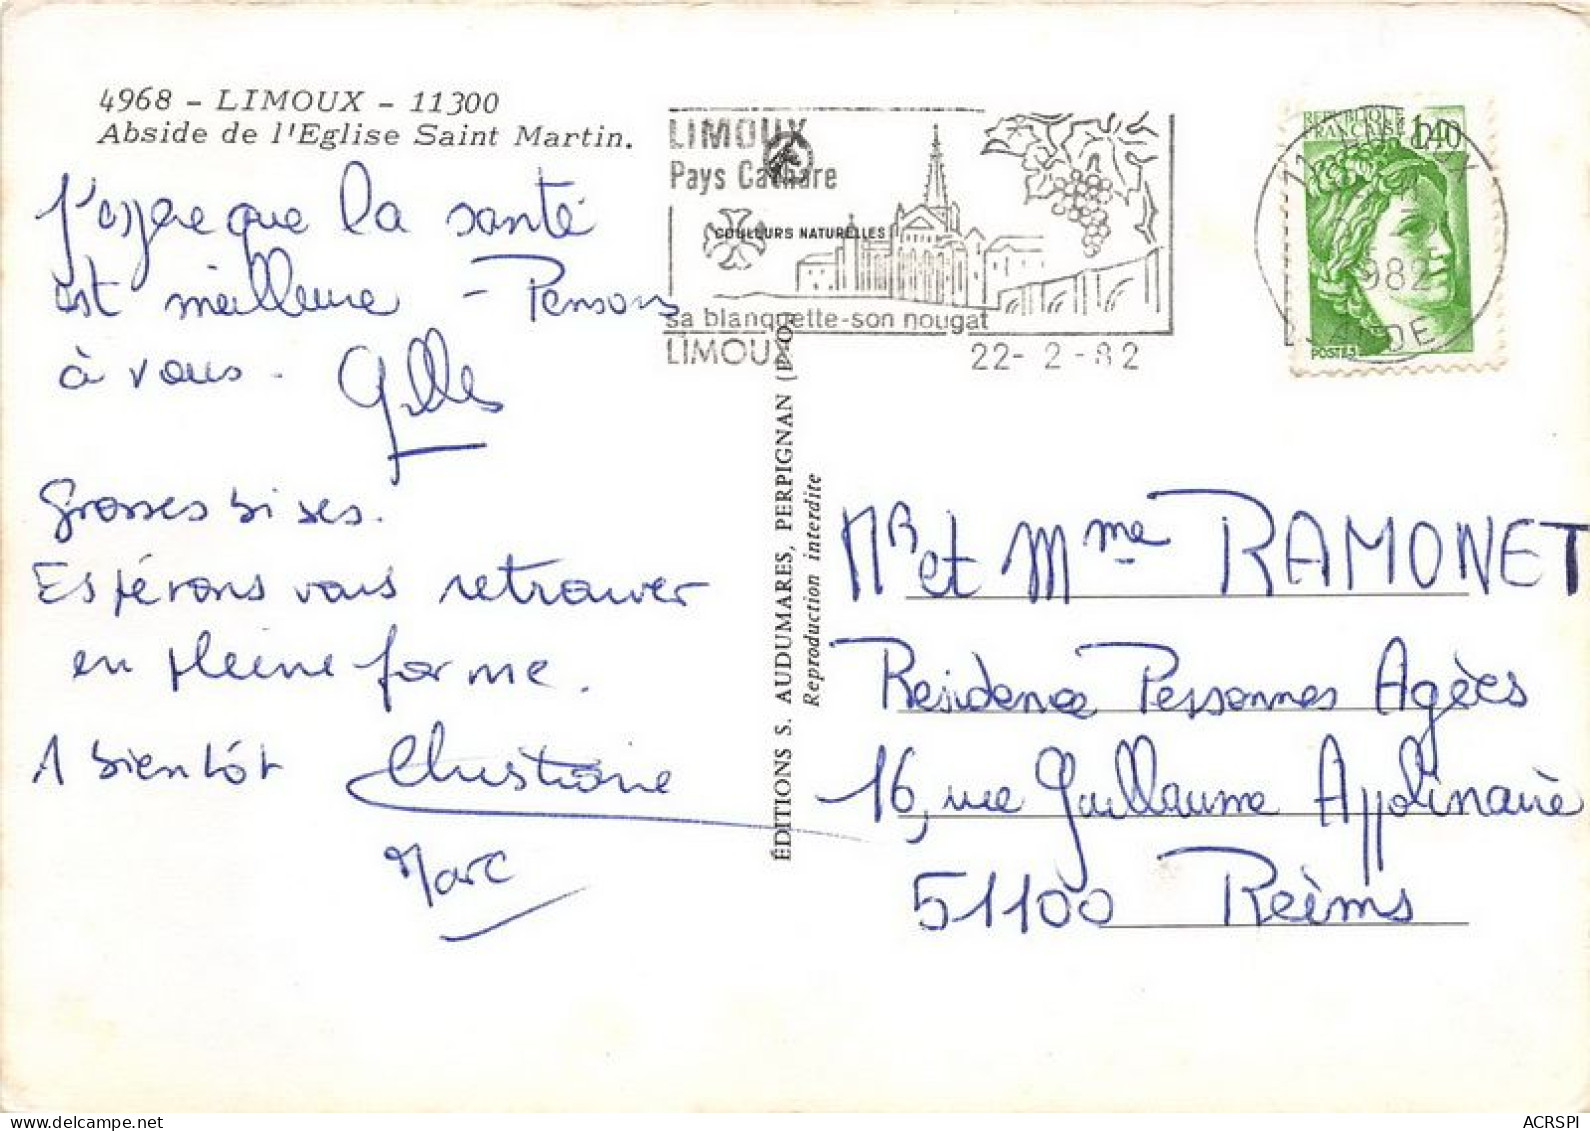 4968 - LIMOUX - 11300
Abside de l'Eglise Saint Martin.
J'espère que la santé
est meilleure - Pensons
à vous. Gilles
Grosses bises.
Espérons vous retrouver
en pleine forme.
A bientôt Christiane
Marc
LIMOUX
Pays Cathare
COULEURS NATURELLES
sa blanquette-son nougat
LIMOUX 22-2-82
REPUBLIQUE
FRANÇAISE 1,40
POSTES
982
AUDE
ÉDITIONS S. AUDUMARES, PERPIGNAN
Reproduction interdite
Mr et Mme RAMONET
Résidence Personnes Agées
16, rue Guillaume Appolinaire
51100 Reims
ACRSPI